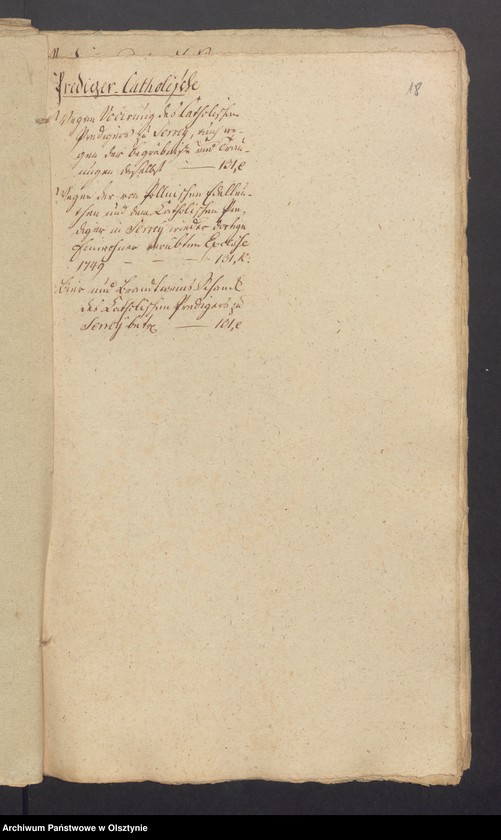 18
Prediger-Catholische
Wegen Vocirung des Catholischen
Predigers zu Serrey, auch we-
gen der Begräbniße und Trau-
ungen daselbst — 131,e
Wegen der von Pollnischen Edelleu-
then und dem Catholischen Pre-
diger in Serrey wieder dortige
Einwohner verübten Excesse
1749 — — — 131,k.
Bier und Brandtweins Schanck
des Catholischen Predigers zu
Serrey betr — 101,e
Archiwum Państwowe w Olsztynie